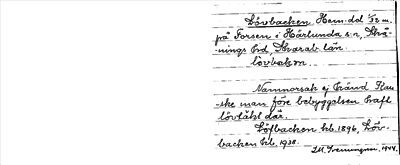 Lövbacken Hem.del 1/32 m.
på Forsen i Härlunda s:n, Skä-
nings hd, Skarab. län.
lövbakən
Namnorsak ej känd. Kan-
ske man före bebyggelsen haft
lövtäkt där.
Löfbacken hlb. 1896, Löv-
backen hlb. 1930.
1944.